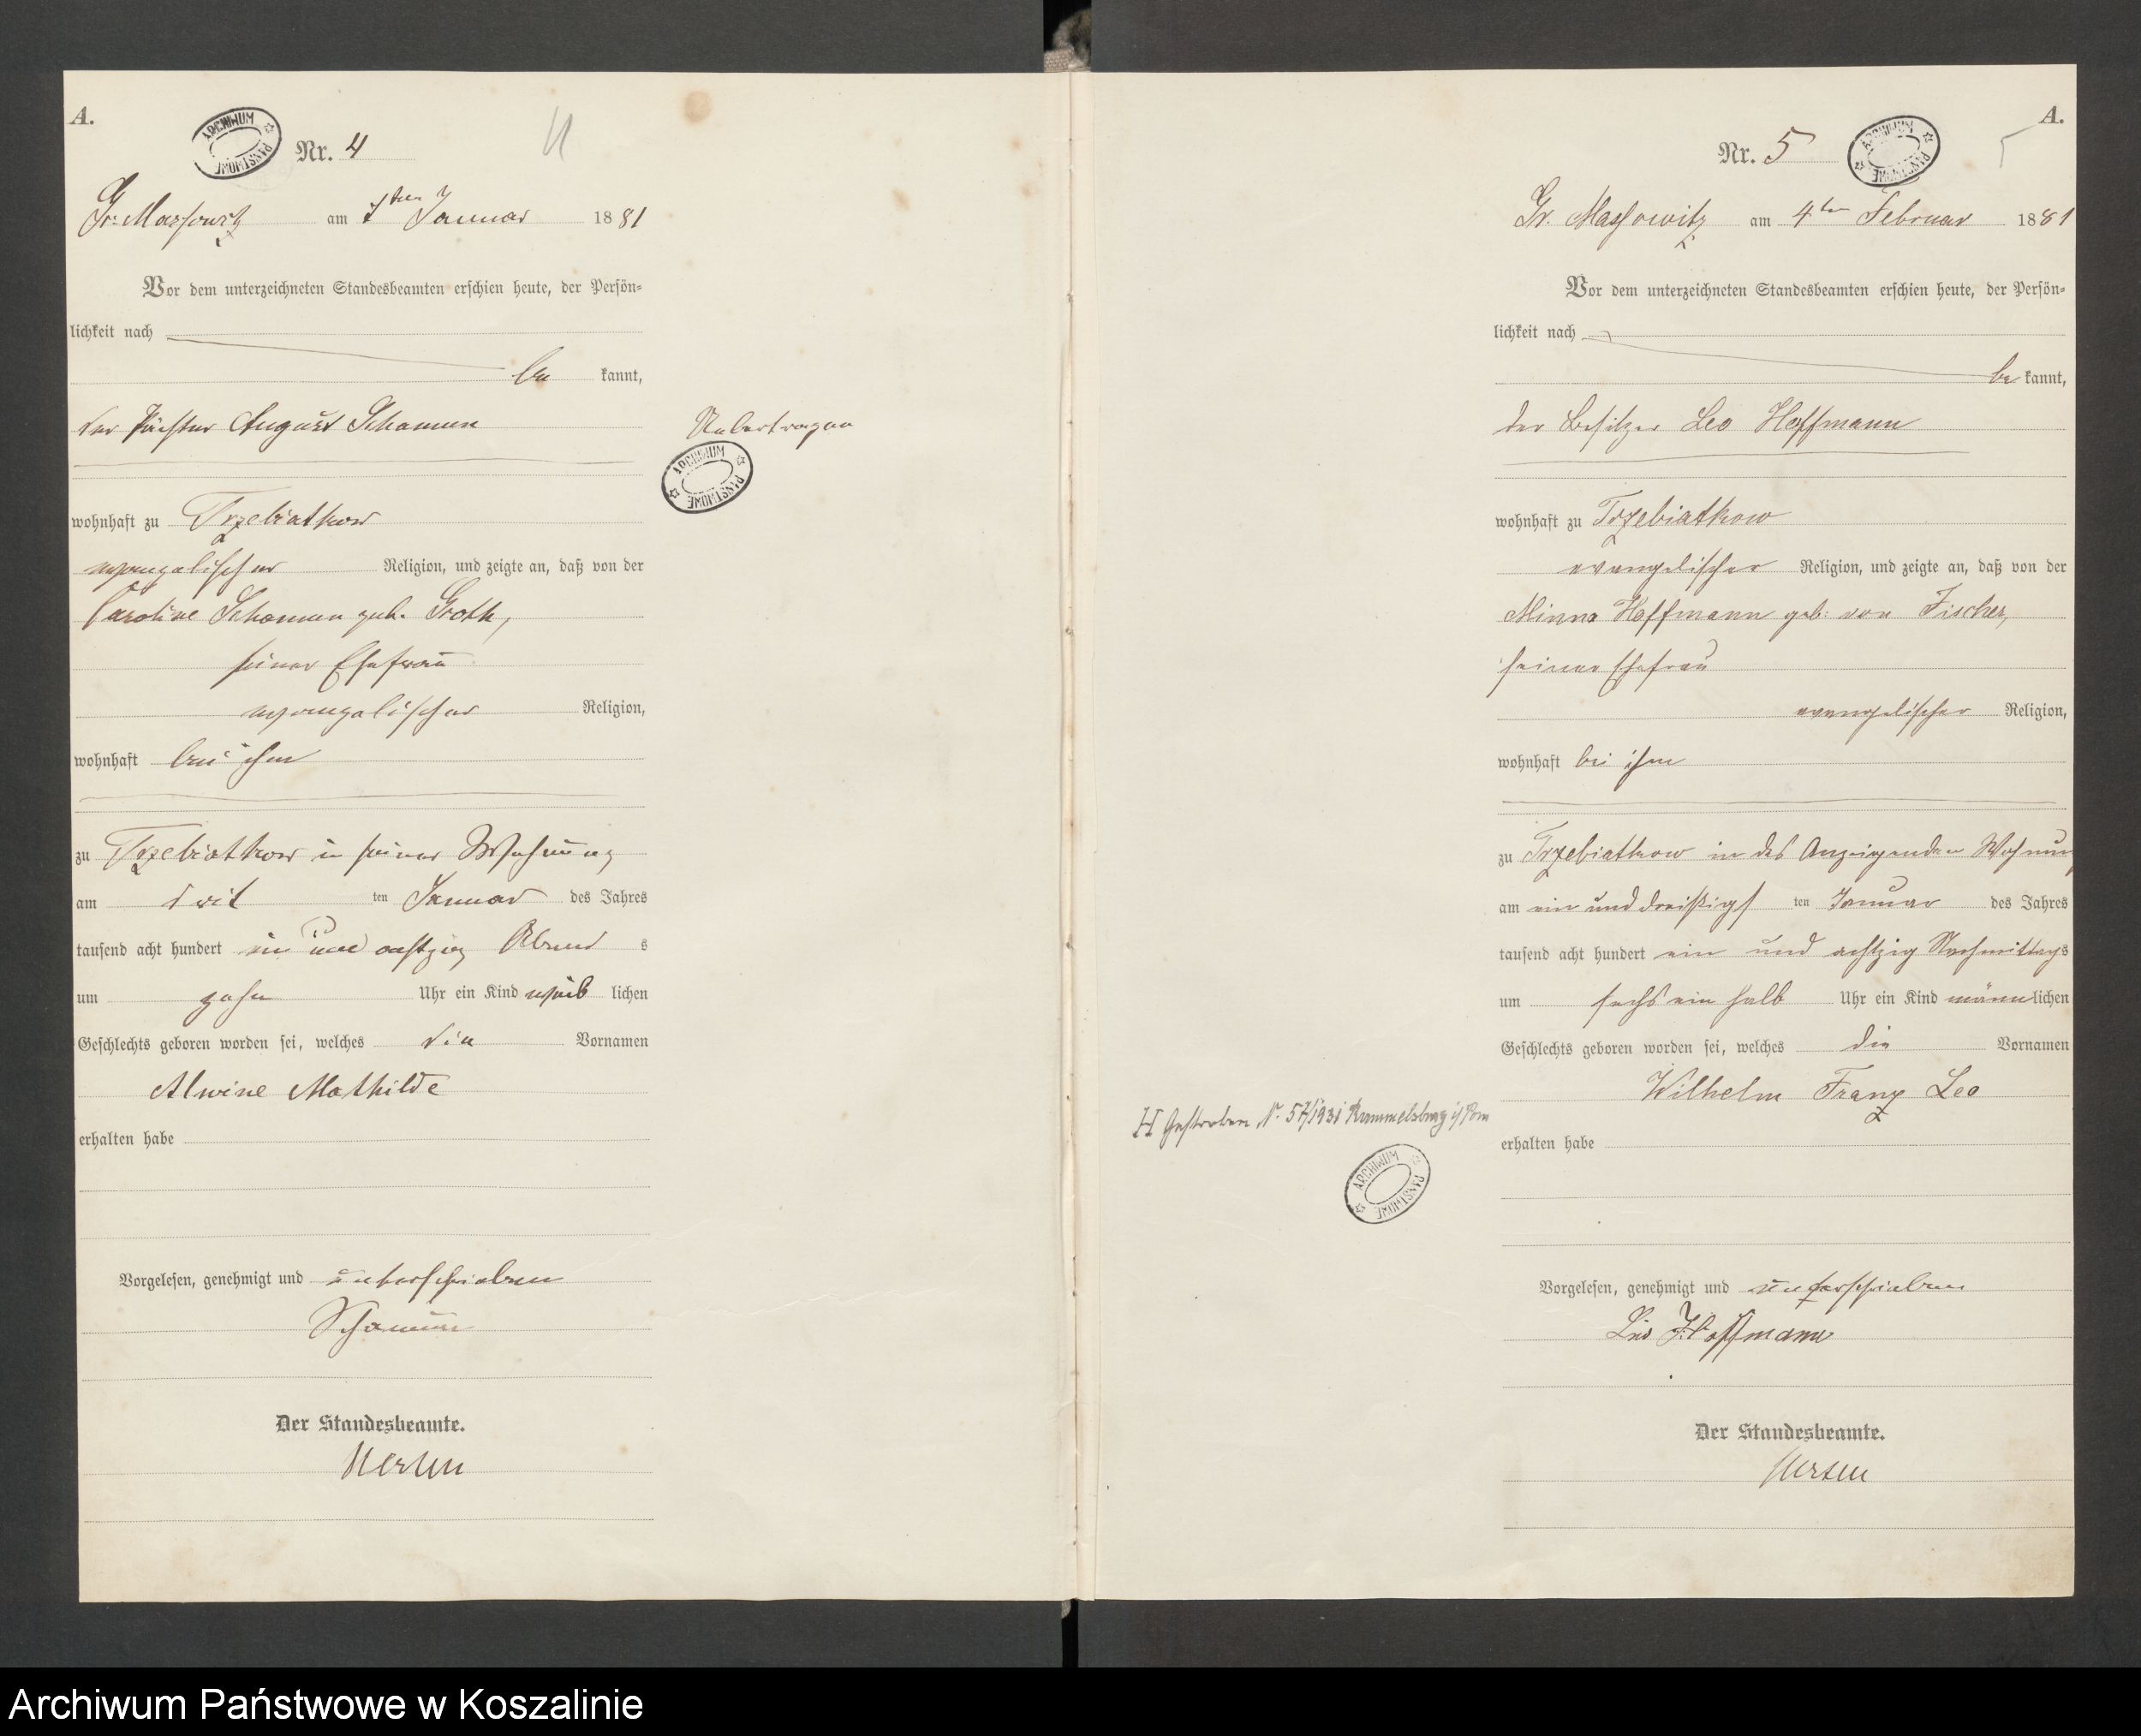 A.
ARCHIWUM PAŃSTWOWE
Nr. 4
4
Gr. Massowitz am 7ten Januar 1881
Vor dem unterzeichneten Standesbeamten erschien heute, der Persön-
lichkeit nach
be kannt,
der Pächter August Schamun
wohnhaft zu Trzebiatkow
evangelischer Religion, und zeigte an, daß von der
Caroline Schamun geb. Groth,
seiner Ehefrau
evangelischer Religion,
wohnhaft bei ihm
zu Trzebiatkow in seiner Wohnung
am drit ten Januar des Jahres
tausend acht hundert ein und achtzig Abend s
um zehn Uhr ein Kind weib lichen
Geschlechts geboren worden sei, welches die Vornamen
Alwine Mathilde
erhalten habe
Vorgelesen, genehmigt und unterschrieben
Schamun
Der Standesbeamte.
Uebertragen
ARCHIWUM PAŃSTWOWE
A.
Nr. 5
ARCHIWUM PAŃSTWOWE
5
Gr. Massowitz am 4ten Februar 1881
Vor dem unterzeichneten Standesbeamten erschien heute, der Persön-
lichkeit nach
be kannt,
der Besitzer Leo Hoffmann
wohnhaft zu Trzebiatkow
evangelischer Religion, und zeigte an, daß von der
Minna Hoffmann geb. von Fischer,
seiner Ehefrau
evangelischer Religion,
wohnhaft bei ihm
zu Trzebiatkow in des Anzeigenden Wohnung
am ein und dreißigs ten Januar des Jahres
tausend acht hundert ein und achtzig Nachmittags
um sechs ein halb Uhr ein Kind männ lichen
Geschlechts geboren worden sei, welches die Vornamen
Wilhelm Franz Leo
erhalten habe
Vorgelesen, genehmigt und unterschrieben
Leo Hoffmann
Der Standesbeamte.
H Gestorben Nr. 57/1931 Rummelsburg i/Pom
ARCHIWUM PAŃSTWOWE
Archiwum Państwowe w Koszalinie